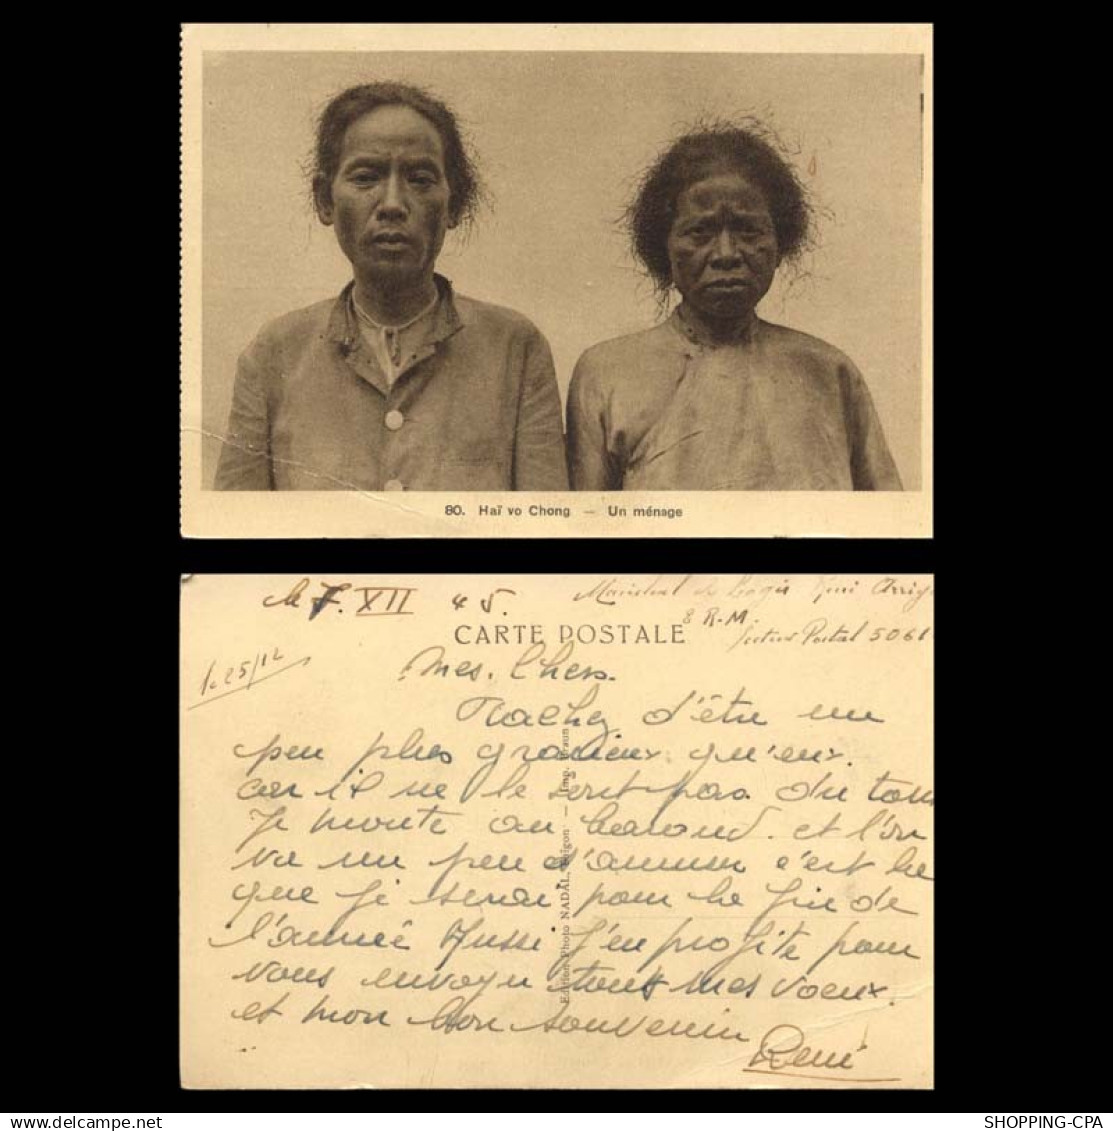 80. Haï vo Chong — Un ménage
le 7. XII 45. Maréchal de Logis René
8 R.M.
CARTE POSTALE Secteur Postal 5061
25/12
Mes. Chers.
Tachez d'être un
peu plus gracieux qu'eux.
car il ne le sont pas du tout
Je monte au et l'on
va un peu c'est là
que je serai pour la fin de
l'année Aussi J'en profite pour
vous envoyer tous mes voeux.
et mon bon souvenir
René
Edition Photo NADAL, Saigon — Imp. Braun
SHOPPING-CPA